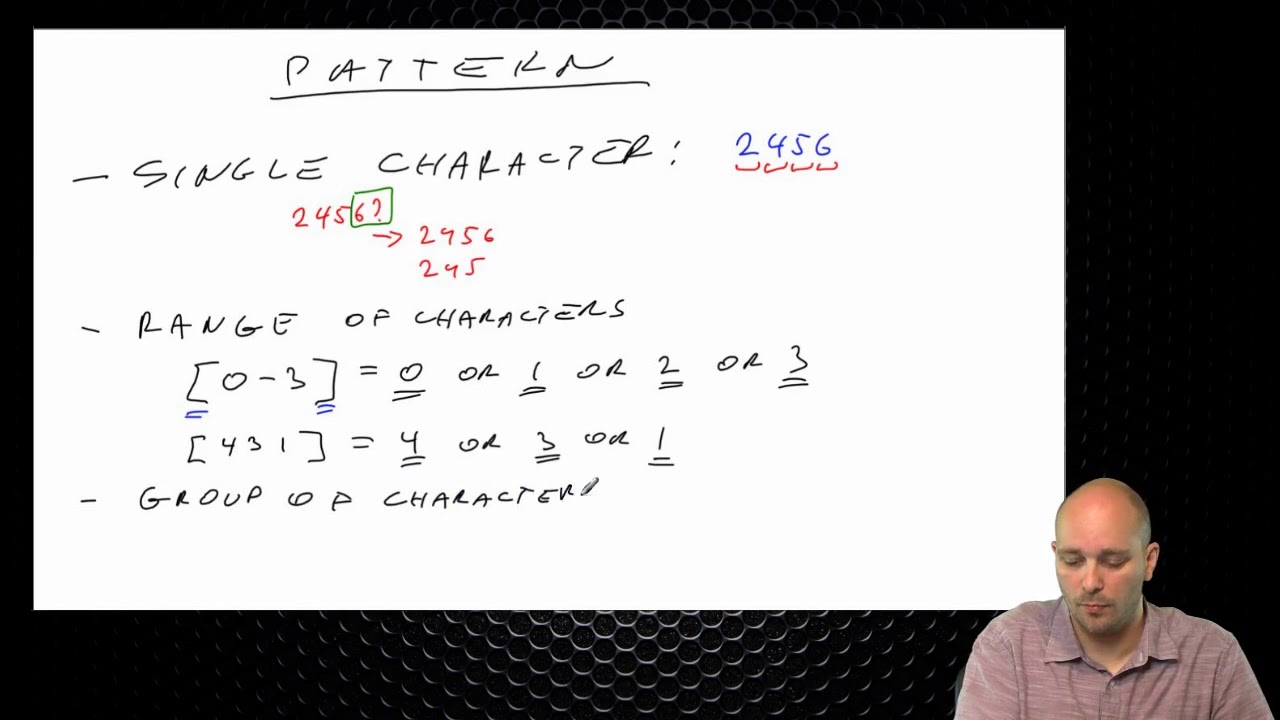 PATTERN
- SINGLE CHARACTER: 2456
2456?
→ 2456
245
- RANGE OF CHARACTERS
[0-3] = 0 OR 1 OR 2 OR 3
[431] = 4 OR 3 OR 1
- GROUP OF CHARACTER